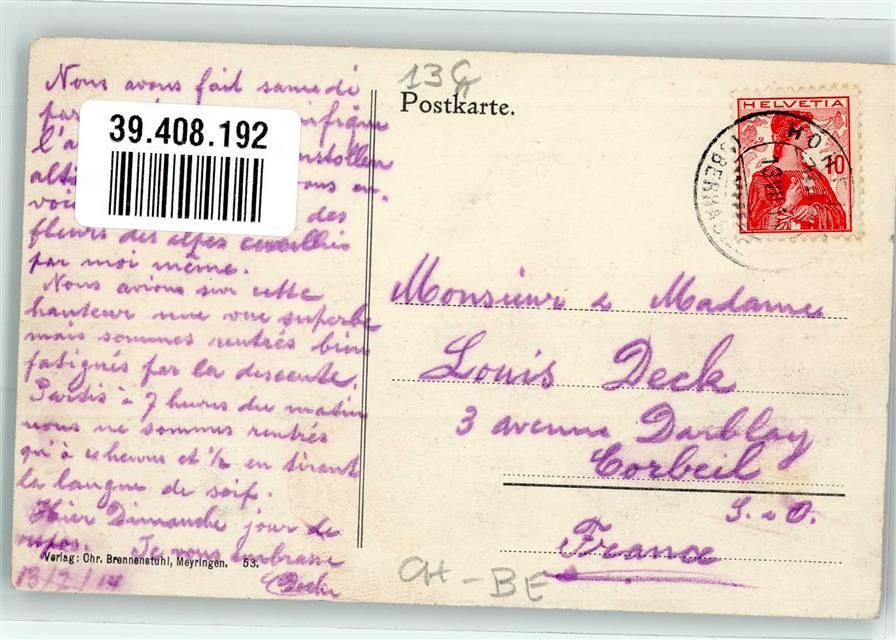 13G
Postkarte.
HELVETIA
10
39.408.192
Nous avons fait samedi
par
l'a
alti ous en
voi des
fleurs des alpes cueillies
par moi même.
Nous avions sur cette
hauteur une vue superbe
mais sommes rentrés bien
fatigués par la descente.
Partis à 7 heures du matin
nous ne sommes rentrés
qu'à heures et ½ en tirant
la langue de soif.
Hier Dimanche jour de
repos. Je vous embrasse
13/7/14
Verlag: Chr. Brennenstuhl, Meyringen. 53.
Monsieur & Madame
Louis Deck
3 avenue Darblay
Corbeil
S. & O.
France
CH - BE